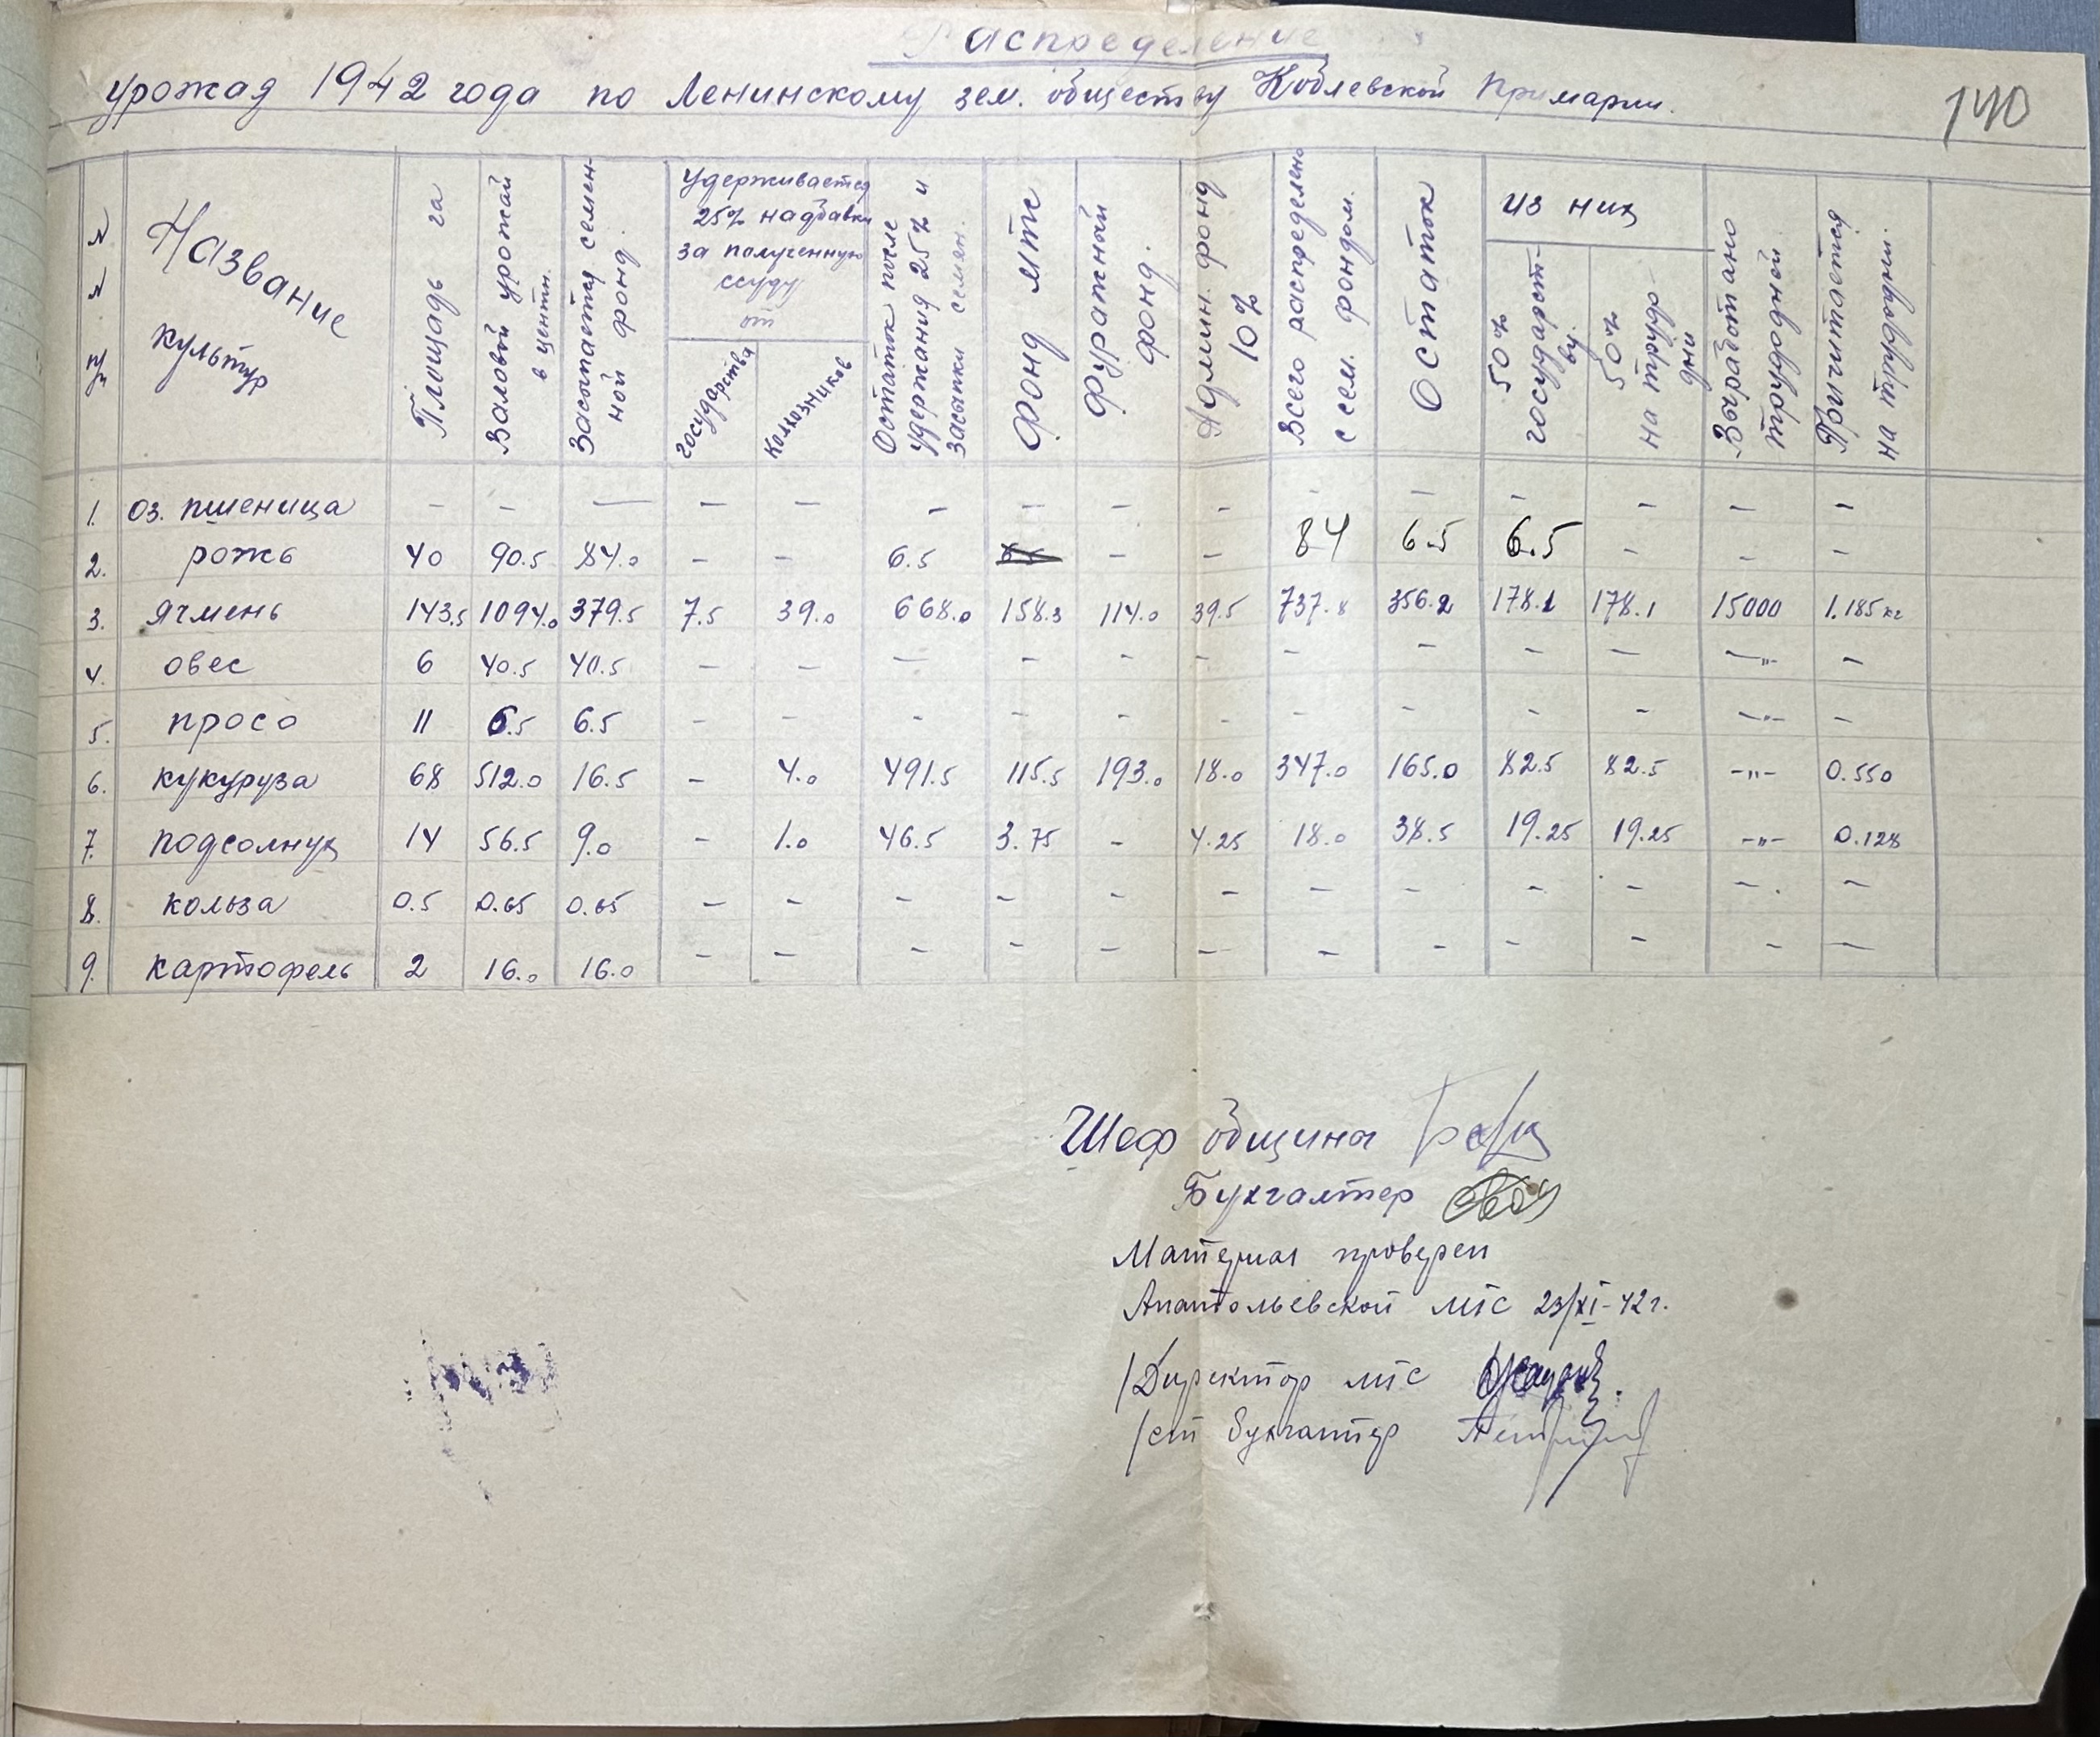 Распределение
урожая 1942 года по Ленинскому зем. обществу Коблевской Примарии.
140
№ № п/п | Название культур | Площадь га | Валовой урожай в центн. | Засыпается семенной фонд. | Удерживается 25% надбавки за полученную ссуду от | государства | колхозников | Остаток после удержания 25% и засыпки семян. | Фонд МТС | Фуражный фонд. | Админ. фонд 10% | Всего распределено с сем. фондом. | Остаток | из них | 50% государст-ву. | 50% на трудодни | Выработано трудодней | Причитается на трудовдни.
1. | оз. пшеница | - | - | - | - | - | - | - | - | - | - | - | - | - | - | -
2. | рожь | 40 | 90.5 | 84.0 | - | - | 6.5 | 6.5 | - | - | 84 | 6.5 | 6.5 | - | - | -
3. | ячмень | 143.5 | 1094.0 | 379.5 | 7.5 | 39.0 | 668.0 | 158.3 | 114.0 | 39.5 | 737.8 | 356.2 | 178.1 | 178.1 | 15000 | 1.185 кг
4. | овес | 6 | 40.5 | 40.5 | - | - | - | - | - | - | - | - | - | - | -"- | -
5. | просо | 11 | 6.5 | 6.5 | - | - | - | - | - | - | - | - | - | - | -"- | -
6. | кукуруза | 68 | 512.0 | 16.5 | - | 4.0 | 491.5 | 115.5 | 193.0 | 18.0 | 347.0 | 165.0 | 82.5 | 82.5 | -"- | 0.550
7. | подсолнух | 14 | 56.5 | 9.0 | - | 1.0 | 46.5 | 3.75 | - | 4.25 | 18.0 | 38.5 | 19.25 | 19.25 | -"- | 0.128
8. | кольза | 0.5 | 0.65 | 0.65 | - | - | - | - | - | - | - | - | - | - | - | -
9. | картофель | 2 | 16.0 | 16.0 | - | - | - | - | - | - | - | - | - | - | - | -
Шеф общины
Бухгалтер
Материал проверен
Анатольевской МТС 23/XI-42 г.
/Директор МТС
/ст бухгалтер